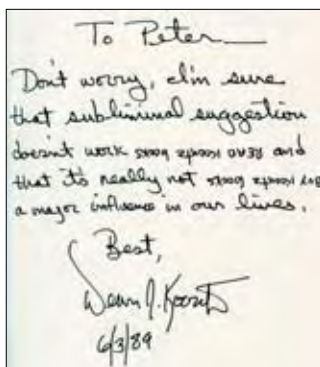 To Peter—
Don't worry, I'm sure
that subliminal suggestion
doesn't work and
that it's really not
a major influence in our lives.
Best,
Dean R. Koontz
6/3/89